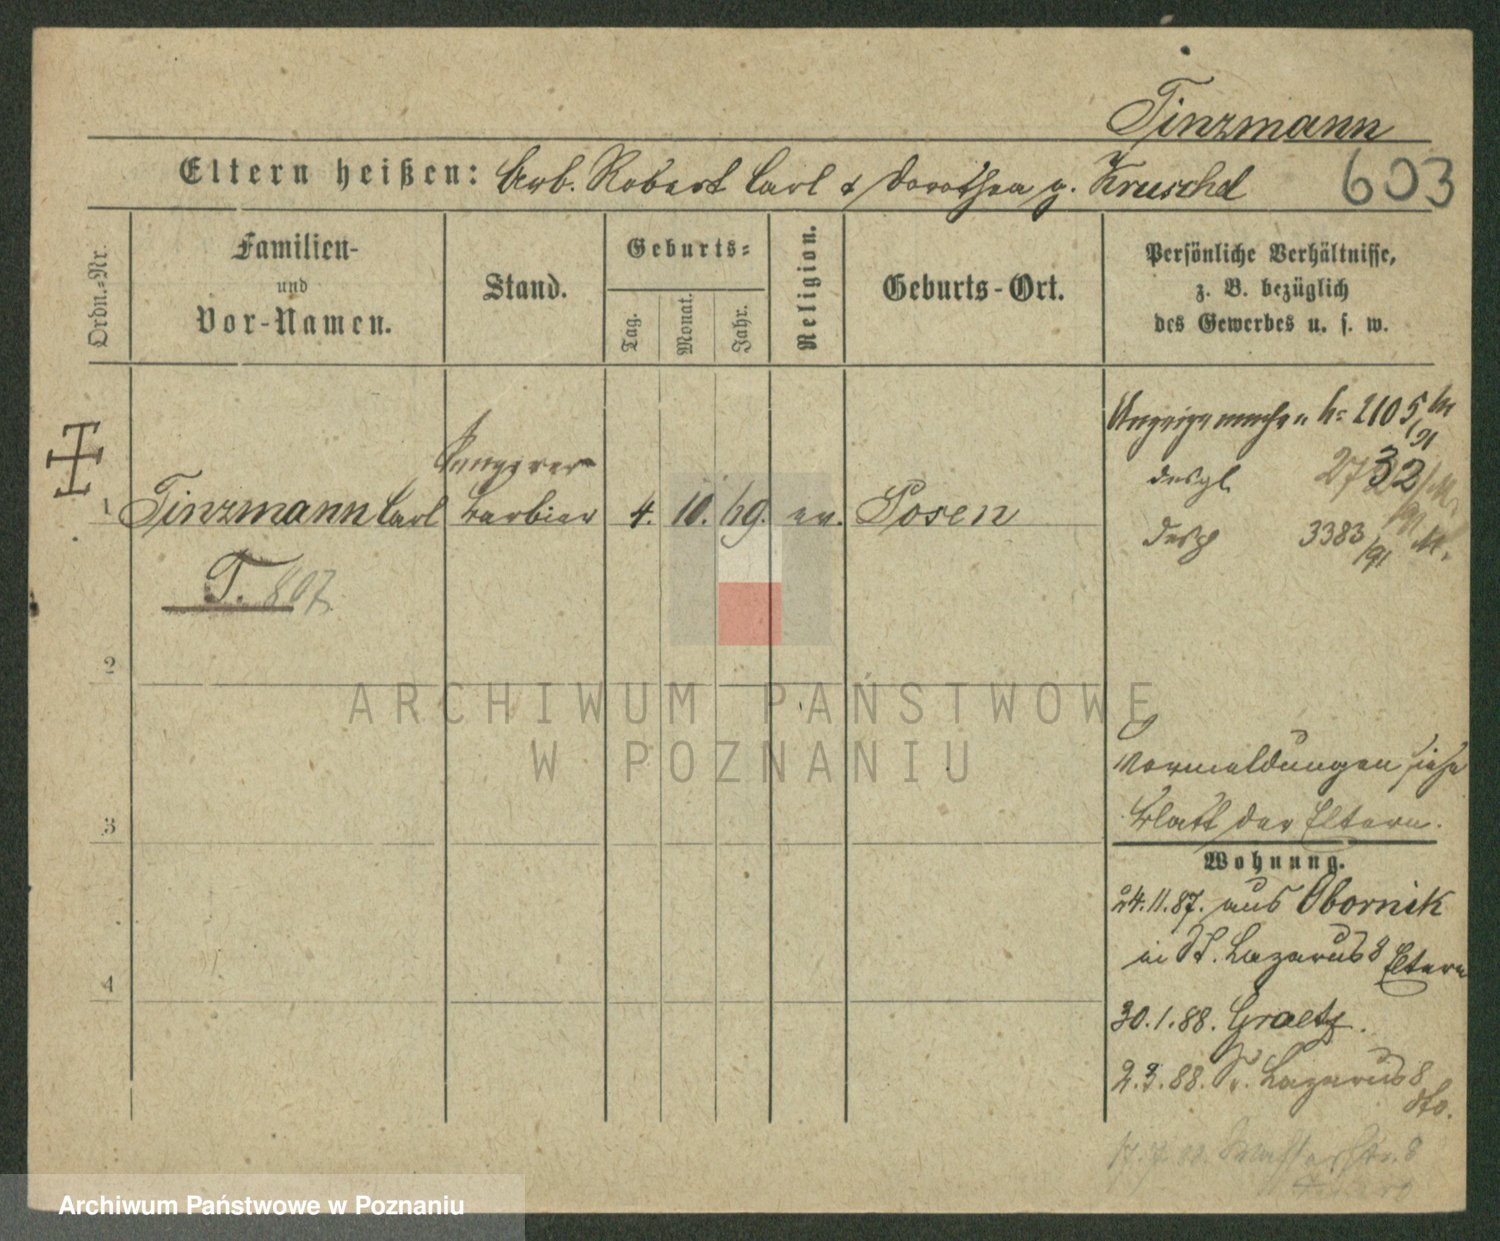 Tinzmann
Eltern heißen: Arb. Robert Carl & Dorothea g. Kruschel
603
Ordn.-Nr.
Familien-
und
Vor-Namen.
Stand.
Geburts-
Tag.
Monat.
Jahr.
Religion.
Geburts-Ort.
Persönliche Verhältnisse,
z. B. bezüglich
des Gewerbes u. s. w.
1 Tinzmann Carl Barbier 4. 10. 69. ev. Posen
T. 807
2
3
4
2105/91
desgl 2732
desgl 3383/91 M.
Vormeldungen siehe
Blatt der Eltern.
Wohnung.
24.11.87. aus Obornik
in St. Lazarus 8 Eltern
30.1.88. Graetz.
2.3.88. St. Lazarus 8
dto.
ARCHIWUM PAŃSTWOWE
W POZNANIU
Archiwum Państwowe w Poznaniu